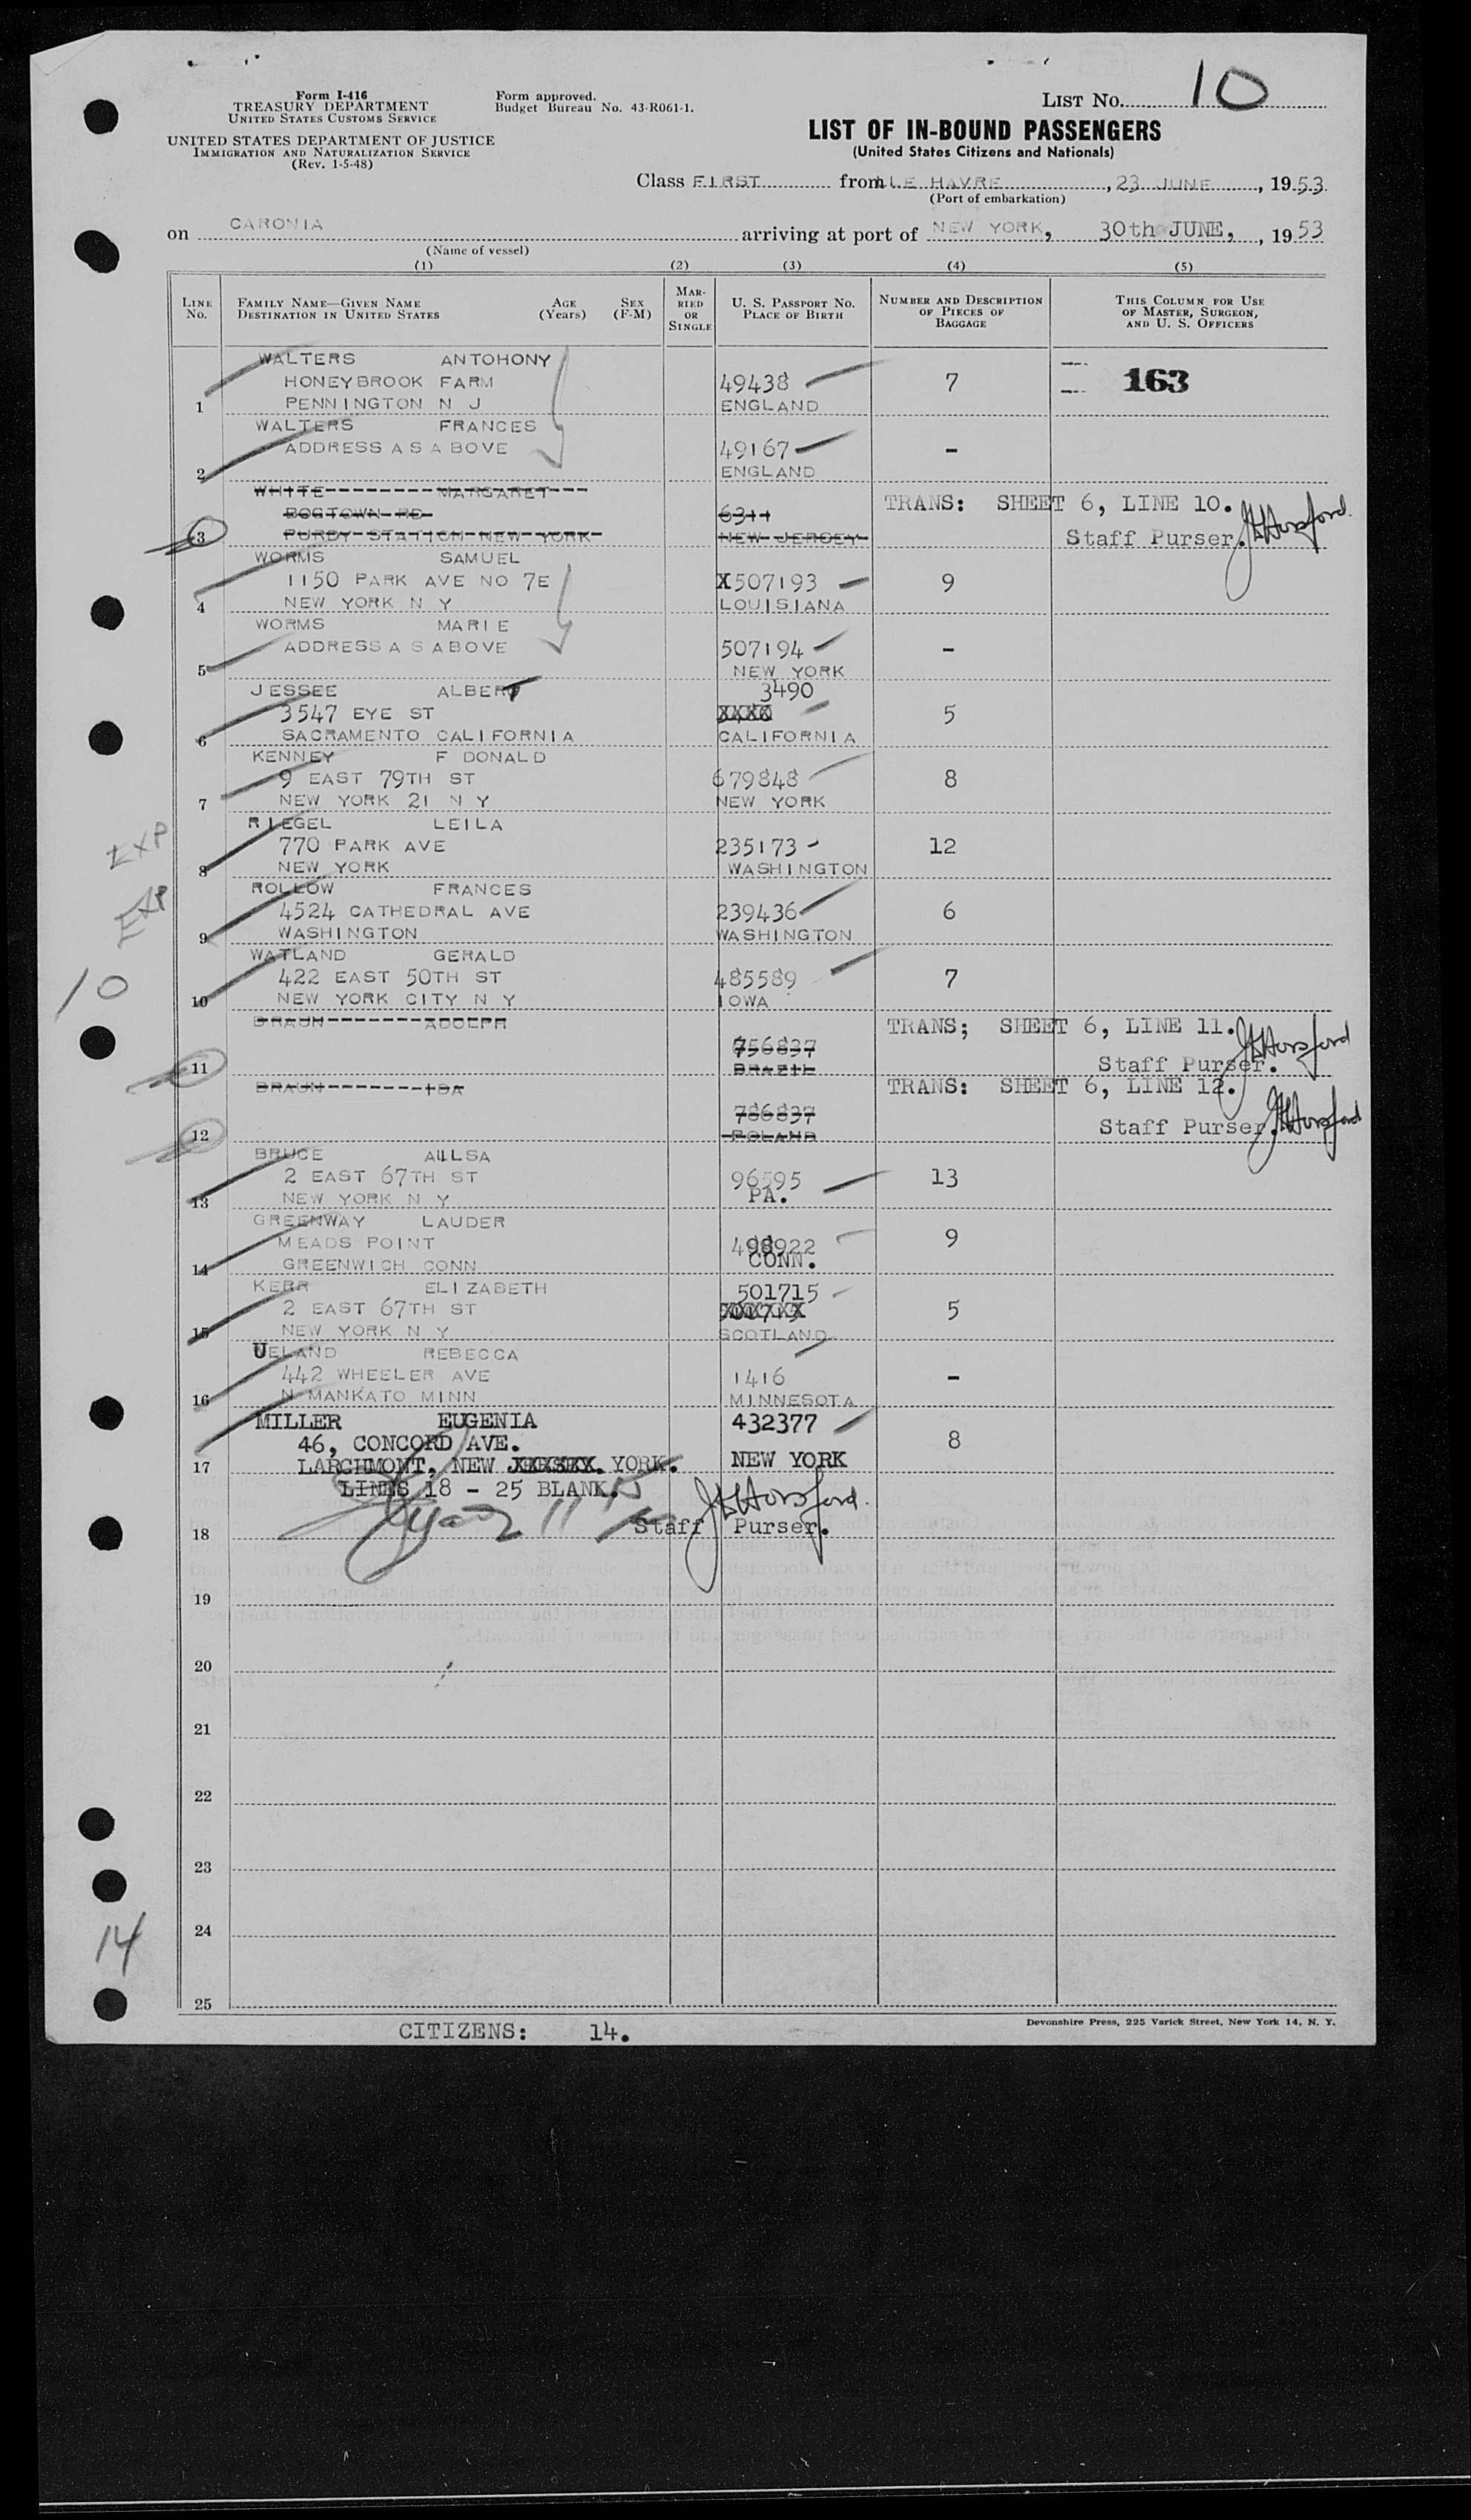 LIST NO. 10
Form I-416
TREASURY DEPARTMENT
UNITED STATES CUSTOMS SERVICE
Form approved.
Budget Bureau No. 43-R061-1.
UNITED STATES DEPARTMENT OF JUSTICE
IMMIGRATION AND NATURALIZATION SERVICE
(Rev. 1-5-48)
LIST OF IN-BOUND PASSENGERS
(United States Citizens and Nationals)
Class FIRST from LE HAVRE, 23 JUNE, 1953
(Port of embarkation)
on CARONIA arriving at port of NEW YORK, 30th JUNE, , 1953
(Name of vessel)
(1) (2) (3) (4) (5)
LINE No. FAMILY NAME—GIVEN NAME DESTINATION IN UNITED STATES AGE (Years) SEX (F-M) MARRIED OR SINGLE U. S. PASSPORT NO. PLACE OF BIRTH NUMBER AND DESCRIPTION OF PIECES OF BAGGAGE THIS COLUMN FOR USE OF MASTER, SURGEON, AND U. S. OFFICERS
WALTERS ANTOHONY
HONEYBROOK FARM 49438 7 163
1 PENNINGTON N J ENGLAND
WALTERS FRANCES
ADDRESS A S A BOVE 49167 -
2 ENGLAND
WHITE MARGARET
BOGTOWN RD 6311 TRANS: SHEET 6, LINE 10.
3 PURDY STATION NEW YORK NEW JERSEY Staff Purser. JHorsford.
WORMS SAMUEL
1150 PARK AVE NO 7E X507193 9
4 NEW YORK N Y LOUISIANA
WORMS MARIE
ADDRESS A S ABOVE 507194 -
5 NEW YORK
JESSEE ALBERT 3490
3547 EYE ST XXXX 5
6 SACRAMENTO CALIFORNIA CALIFORNIA
KENNEY F DONALD
9 EAST 79TH ST 679848 8
7 NEW YORK 21 N Y NEW YORK
EXP
RIEGEL LEILA
770 PARK AVE 235173 12
8 NEW YORK WASHINGTON
EXP
ROLLOW FRANCES
4524 CATHEDRAL AVE 239436 6
9 WASHINGTON WASHINGTON
WATLAND GERALD
10 422 EAST 50TH ST 485589 7
10 NEW YORK CITY N Y IOWA
BRAUN ADOLPH TRANS; SHEET 6, LINE 11.
756837
11 BRAZIL Staff Purser. JHorsford
BRAUN IDA TRANS: SHEET 6, LINE 12.
786837
12 POLAND Staff Purser. JHorsford
BRUCE AILSA
2 EAST 67TH ST 96595 13
13 NEW YORK N Y PA.
GREENWAY LAUDER
MEADS POINT 498922 9
14 GREENWICH CONN CONN.
KERR ELIZABETH 501715
2 EAST 67TH ST 5
15 NEW YORK N Y SCOTLAND
UELAND REBECCA
442 WHEELER AVE 1416 -
16 N MANKATO MINN MINNESOTA
MILLER EUGENIA 432377
46, CONCORD AVE. 8
17 LARCHMONT, NEW YORK. NEW YORK
LINES 18 - 25 BLANK. JHorsford.
18 Staff Purser.
19
20
21
22
23
24
14
25
CITIZENS: 14.
Devonshire Press, 225 Varick Street, New York 14, N. Y.